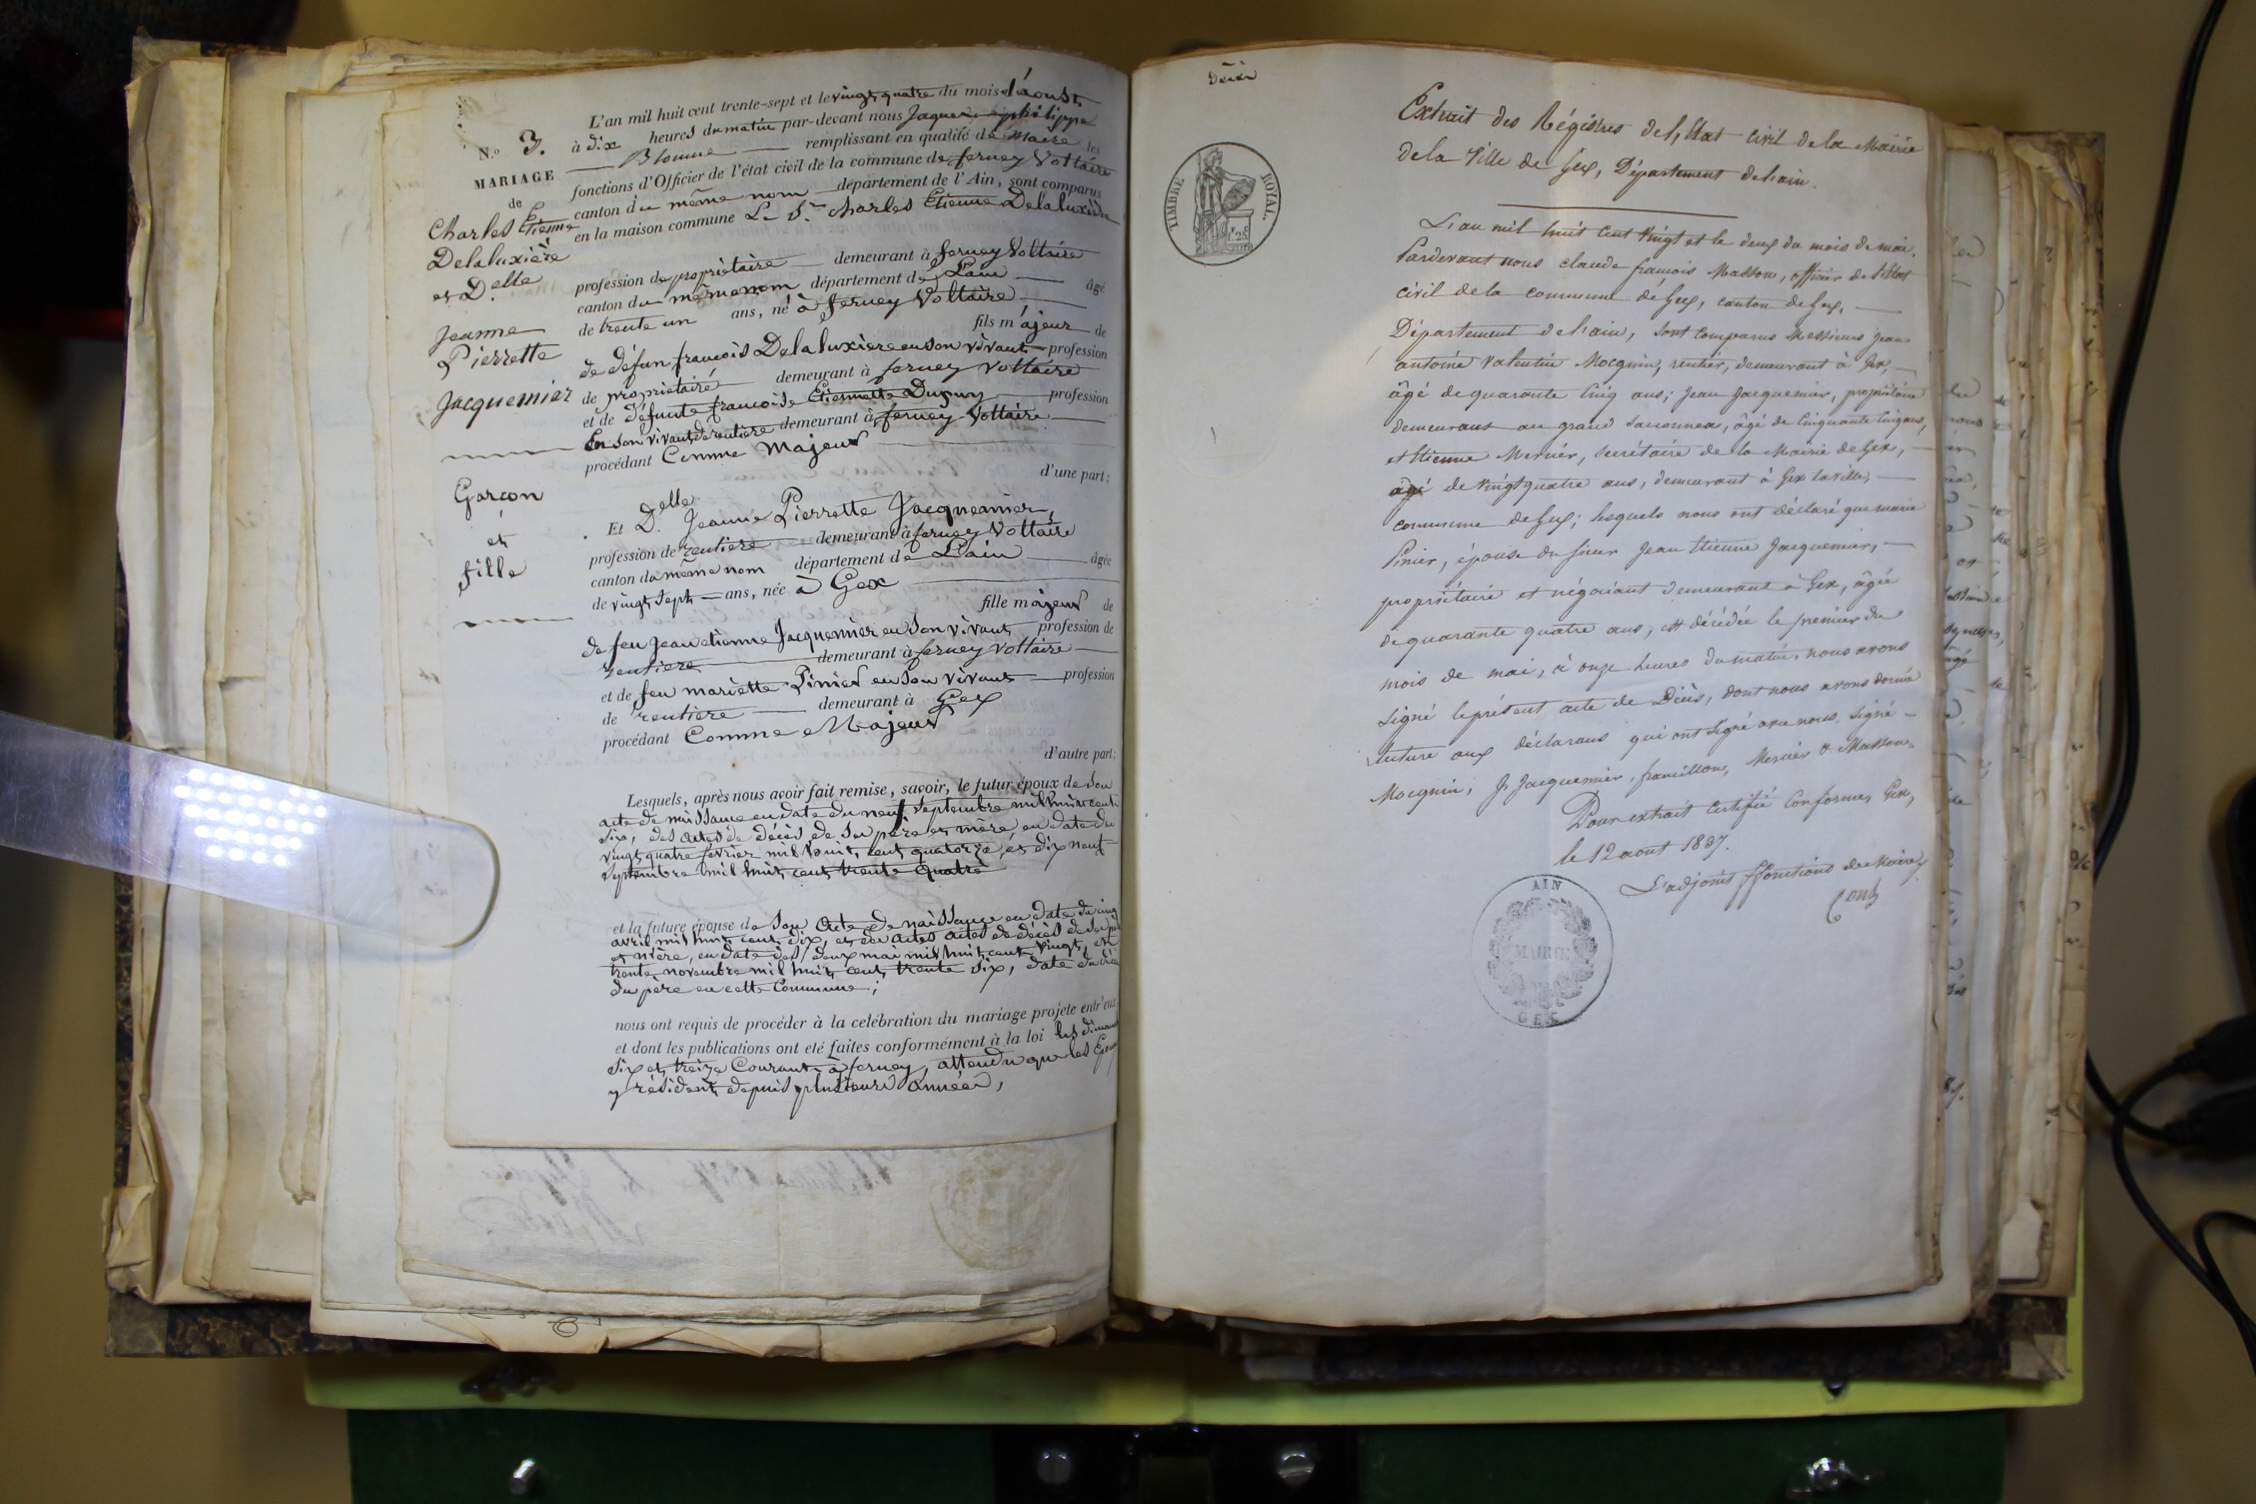 L'an mil huit cent trente-sept et le vingt quatre du mois d'aoust
N.º 3. à dix heures du matin par-devant nous Jaques philippe
MARIAGE Blonne remplissant en qualité de maire les
fonctions d'Officier de l'état civil de la commune de ferney Voltaire
de canton du même nom département de l'Ain, sont comparus
en la maison commune Le S.r Charles Etienne Delaluxière
Charles Etienne
Delaluxière
et D.elle
Jeanne
Pierrette
Jacquemier
Garçon
et
fille
profession de propriétaire demeurant à ferney Voltaire
canton du même nom département de L'ain âgé
de trente un ans, né à ferney Voltaire
fils majeur de
de défun françois Delaluxière en son vivant profession
de propriétaire demeurant à ferney Voltaire
et de défunte françoise Etiennette Dupuy profession
En son vivant de rentière demeurant à ferney Voltaire
procédant Comme Majeur
d'une part;
Et D.elle Jeanne Pierrette Jacquemier,
profession de rentiere demeurant à ferney Voltaire
canton du même nom département de L'ain âgée
de vingt sept ans, née à Gex
fille majeur de
de feu Jean etienne Jacquemier en son vivant profession de
rentiere demeurant à ferney Voltaire
et de feu mariette Pinier en son vivant profession
de rentiere demeurant à Gex
procédant Comme Majeur
d'autre part;
Lesquels, après nous avoir fait remise, savoir, le futur époux de son
acte de naissance en date du neuf septembre mil huit cent
six, des actes de décès de son père et mère, en date du
vingt quatre fevrier mil huit cent quatorze, et dix neuf
septembre mil huit cent trente quatre
et la future épouse de son acte de naissance en date du cinq
avril mil huit cent dix, et des actes actes de décès de ses père
et mère, en date des deux mai mil huit cent vingt, et
trente novembre mil huit cent trente six, date du décè
du pere en cette Commune;
nous ont requis de procéder à la celébration du mariage projeté entr'eux
et dont les publications ont eté faites conformément à la loi les dimanc
six et treize Courant à ferney, attendu que les Epoux
y résident depuis plusieurs années,
Décès
TIMBRE ROYAL.
1f. 25c
Extrait des Régistres de l'Etat civil de la Mairie
de la Ville de Gex, Département de l'ain.
L'an mil huit Cent Vingt et le deux du mois de mai,
Pardevant nous claude françois Masson, officier de l'état
civil de la commune de Gex, canton de Gex,
Département de l'ain, sont comparus Messieurs jean
antoine Valentin Mocquin, rentier, demeurant à Gex,
âgé de quarante Cinq ans; Jean Jacquemier, propriétaire
demeurant au grand Saconnex, âgé de Cinquante Cinq ans,
et Etienne Mernier, secrétaire de la Mairie de Gex,
âgé de vingt quatre ans, demeurant à Gex la ville,
commune de Gex; lesquels nous ont déclaré que marie
Pinier, épouse du sieur Jean Etienne Jacquemier,
propriétaire et négociant demeurant à Gex, âgée
de quarante quatre ans, est décédée le premier du
mois de mai, à onze heures du matin, nous avons
signé le présent acte de Décès, dont nous avons donné
lecture aux déclarans qui ont signé avec nous, signé
Mocquin, J. Jacquemier, francillon, Mernier & Masson.
Pour extrait Certifié Conforme, Gex,
le 12 aout 1837.
L'adjoint ffonctions de Maire,
AIN
MAIRIE
GEX